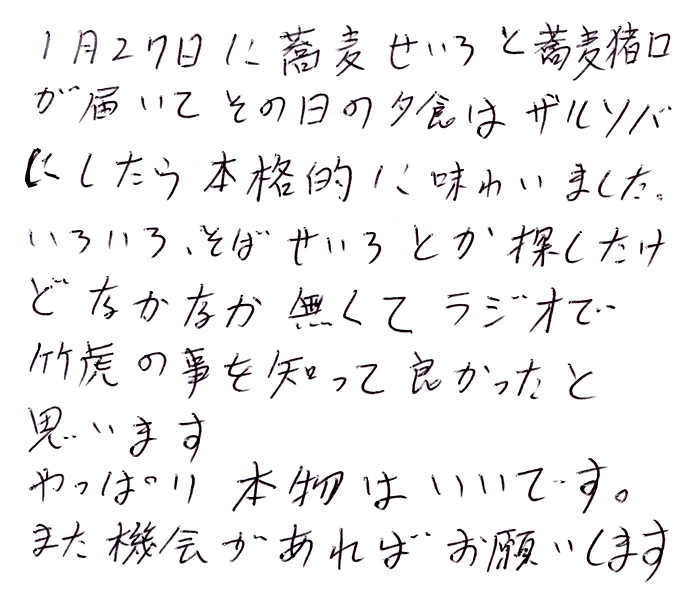 1月27日に蕎麦せいろと蕎麦猪口
が届いてその日の夕食はザルソバ
にしたら本格的に味わいました。
いろいろ、そばせいろとか探したけ
どなかなか無くてラジオで
竹虎の事を知って良かったと
思います
やっぱり本物はいいです。
また機会があればお願いします